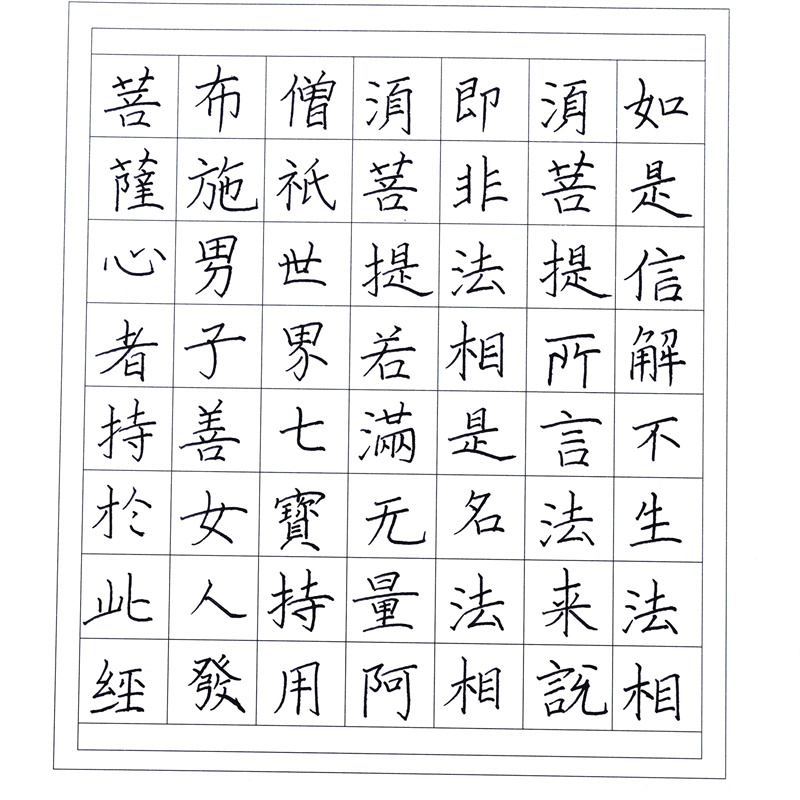 如是信解不生法相
須菩提所言法来說
即非法相是名法相
須菩提若滿无量阿
僧祇世界七寶持用
布施男子善女人發
菩薩心者持於此經